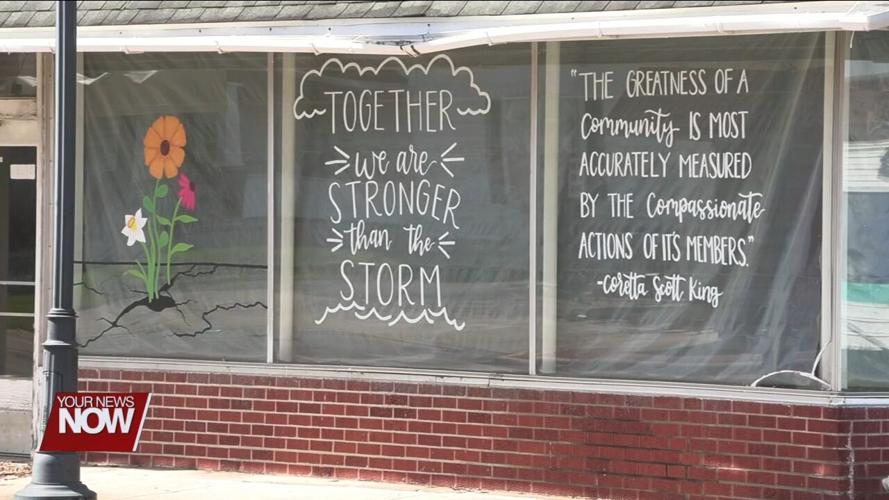 TOGETHER
we are
STRONGER
than the
STORM
"THE GREATNESS OF A
Community IS MOST
ACCURATELY MEASURED
BY THE Compassionate
ACTIONS OF IT'S MEMBERS."
-Coretta Scott King
YOUR NEWS
NOW